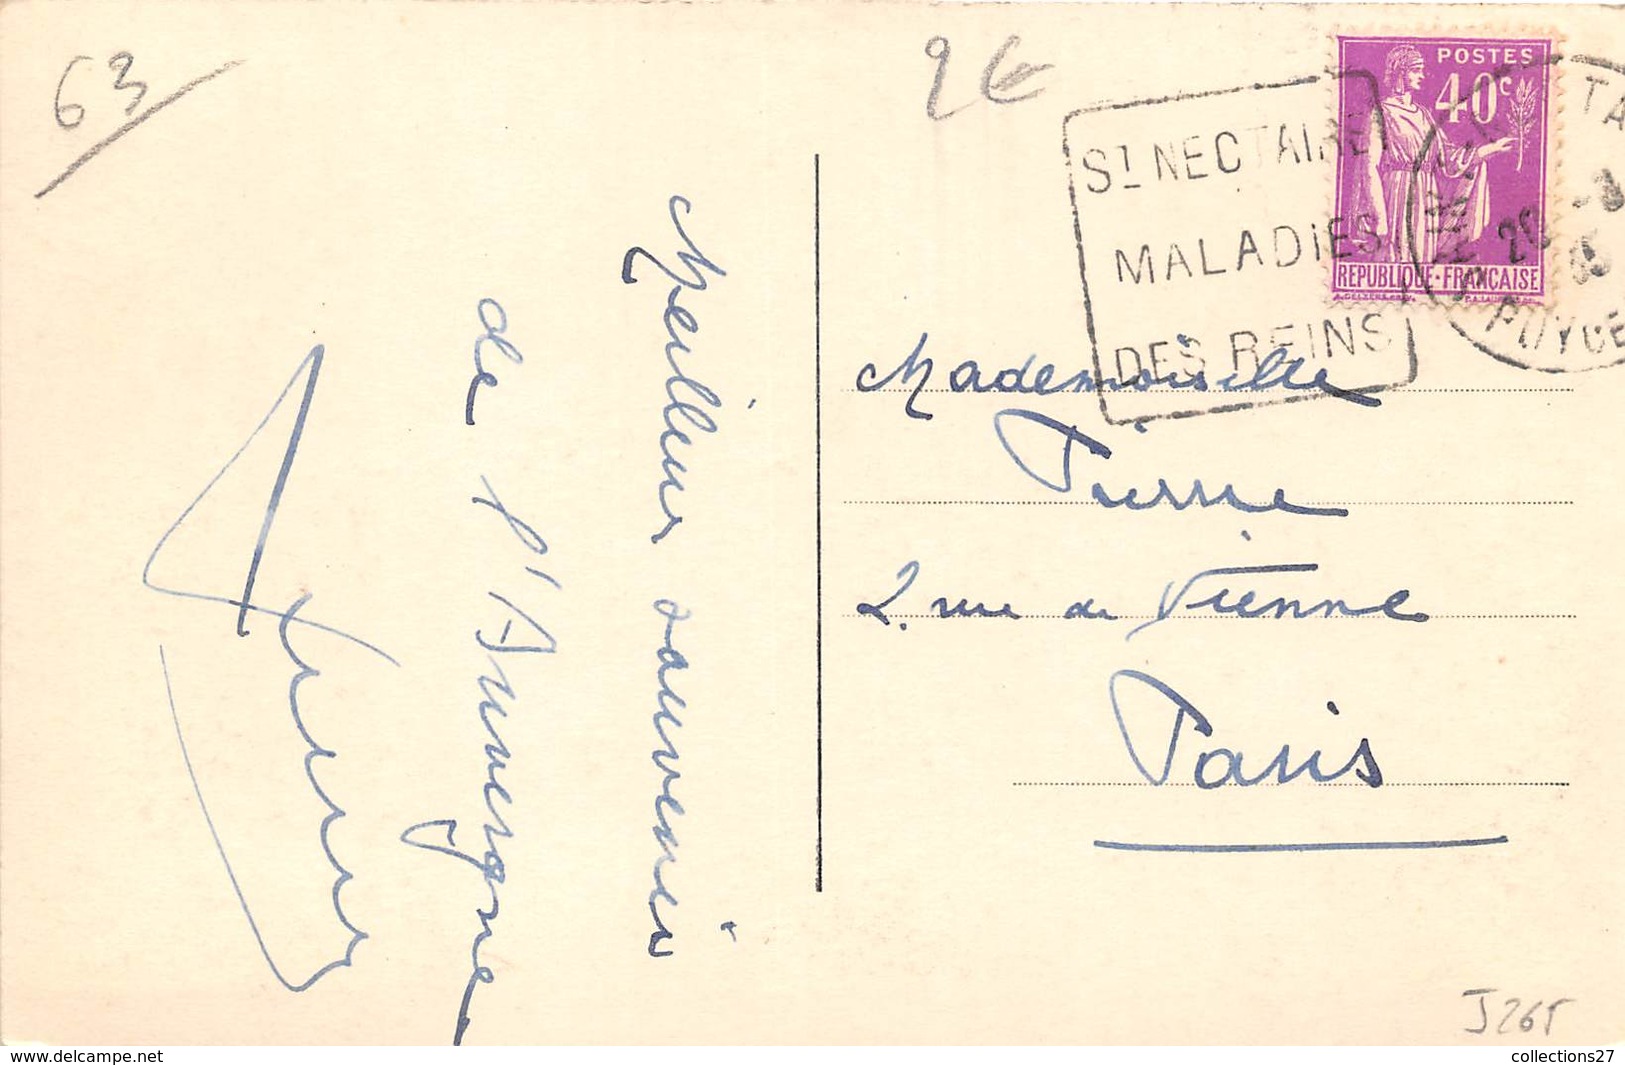 63
2€
POSTES
40c
REPUBLIQUE·FRANÇAISE
ST NECTAIRE
MALADIES
DES REINS
20 -8
35
PUY DE
Meilleur souvenir
de l'Auvergne
Mademoiselle
Pierre
2. rue de Vienne
Paris
J265
collections27